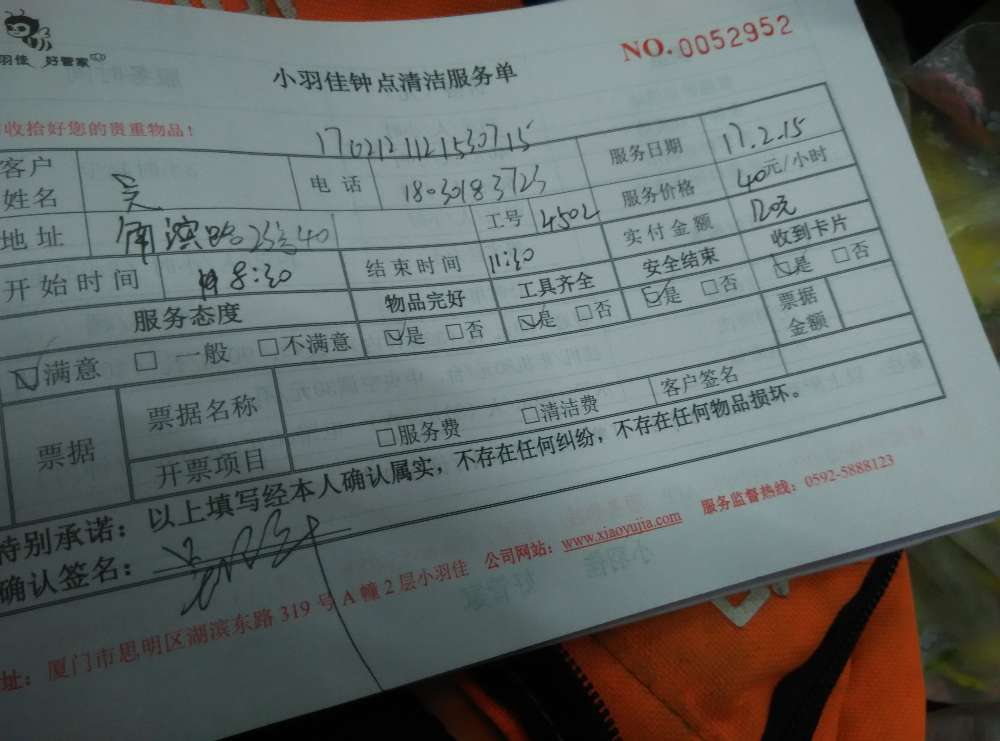 羽佳 好管家
NO. 0052952
小羽佳钟点清洁服务单
收拾好您的贵重物品！
1702121121530715
客户姓名 吴 电话 18030183723 服务日期 17.2.15
地址 湖滨路 工号 4502 服务价格 40元/小时
开始时间 8:30 结束时间 11:30 实付金额 120元
服务态度 物品完好 工具齐全 安全结束 收到卡片
☑满意 □一般 □不满意 ☑是 □否 ☑是 □否 ☑是 □否 ☑是 □否
票据 票据名称 票据金额
开票项目 □服务费 □清洁费 客户签名
特别承诺：以上填写经本人确认属实，不存在任何纠纷，不存在任何物品损坏。
确认签名：
址：厦门市思明区湖滨东路 319 号 A 幢 2 层小羽佳 公司网站：www.xiaoyujia.com 服务监督热线：0592-5888123